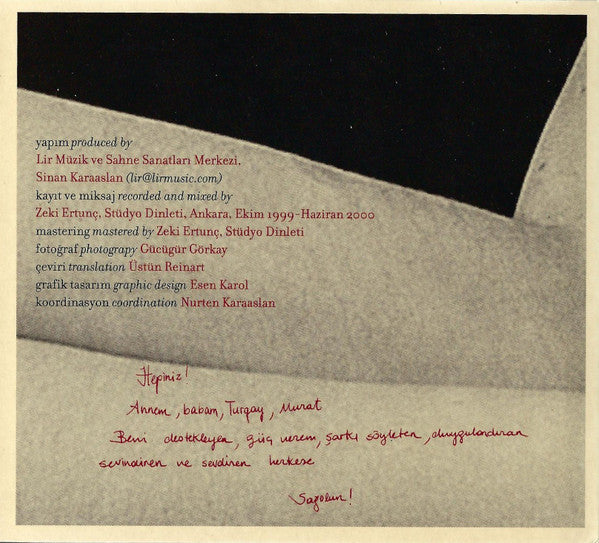 yapım produced by
Lir Müzik ve Sahne Sanatları Merkezi,
Sinan Karaaslan (lir@lirmusic.com)
kayıt ve miksaj recorded and mixed by
Zeki Ertunç, Stüdyo Dinleti, Ankara, Ekim 1999-Haziran 2000
mastering mastered by Zeki Ertunç, Stüdyo Dinleti
fotoğraf photograpy Gücügür Görkay
çeviri translation Üstün Reinart
grafik tasarım graphic design Esen Karol
koordinasyon coordination Nurten Karaaslan
Hepiniz!
Annem, babam, Turgay, Murat
Beni destekleyen, güç veren, şarkı söyleten, duygulandıran
sevindiren ve sevdiren herkese
Sağolun!